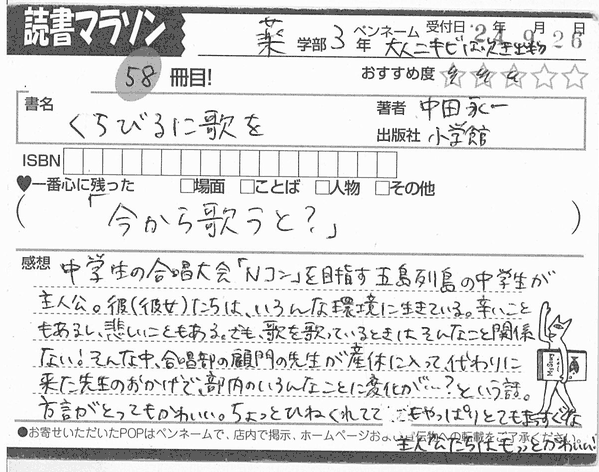 読書マラソン
薬 学部 3 年 ペンネーム 大人ニキビは吹き出物 受付日 24 年 9 月 26 日
58 冊目! おすすめ度 ☆☆☆☆☆
書名 くちびるに歌を
著者 中田永一
出版社 小学館
ISBN
♥一番心に残った □場面 □ことば □人物 □その他
(「今から歌うと?」)
感想 中学生の合唱大会「Nコン」を目指す五島列島の中学生が
主人公。彼(彼女)たちは、いろんな環境に生きている。辛いこと
もあるし、悲しいこともある。でも、歌を歌っているときはそんなこと関係
ない!そんな中、合唱部の顧問の先生が産休に入って、代わりに
来た先生のおかげで、部内のいろんなことに変化が…?という話。
方言がとってもかわいい。ちょっとひねくれてて でもやっぱりとてもまっすぐな
主人公たちはもっとかわいい!
●お寄せいただいたPOPはペンネームで、店内で掲示、ホームページおよび への転載をご了承ください。